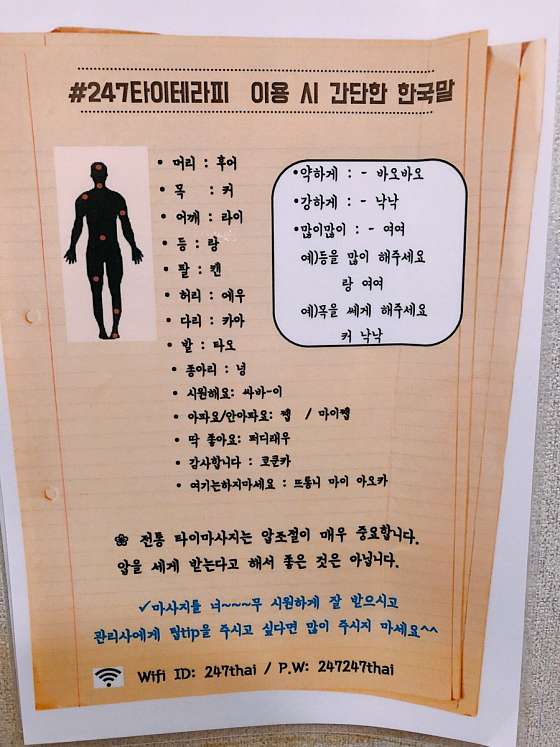 #247타이테라피 이용 시 간단한 한국말
• 머리 : 후어
• 목 : 커
• 어깨 : 라이
• 등 : 랑
• 팔 : 켄
• 허리 : 에우
• 다리 : 카아
• 발 : 타오
• 종아리 : 넝
• 시원해요: 싸바-이
• 아파요/안아파요: 쩹 / 마이쩹
• 딱 좋아요: 퍼디래우
• 감사합니다 : 코쿤카
• 여기는하지마세요 : 뜨롱니 마이 아오카
•약하게 : - 바오바오
•강하게 : - 낙낙
•많이많이 : - 여여
예)등을 많이 해주세요
랑 여여
예)목을 쎄게 해주세요
커 낙낙
❀ 전통 타이마사지는 압조절이 매우 중요합니다.
압을 세게 받는다고 해서 좋은 것은 아닙니다.
✓마사지를 너~~~무 시원하게 잘 받으시고
관리사에게 팁tip을 주시고 싶다면 많이 주시지 마세요^^
Wifi ID: 247thai / P.W: 247247thai